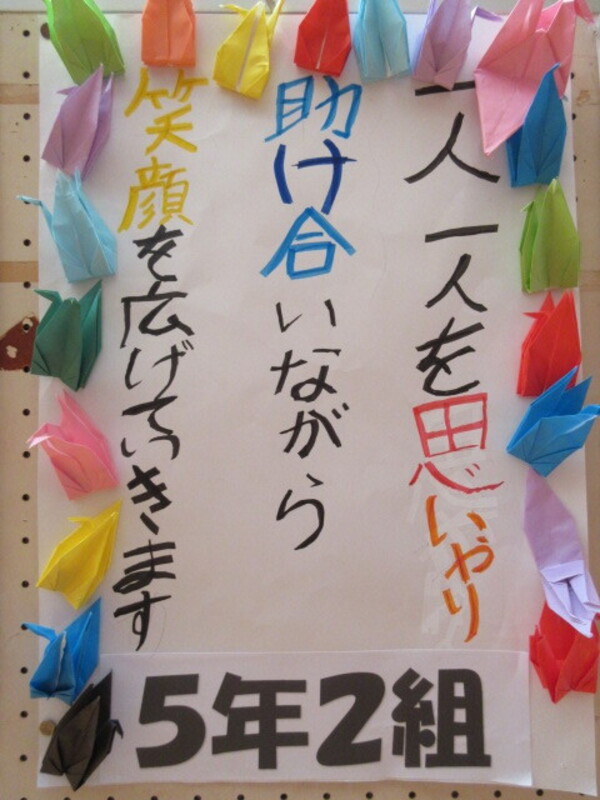 一人一人を思いやり
助け合いながら
笑顔を広げていきます
5年2組